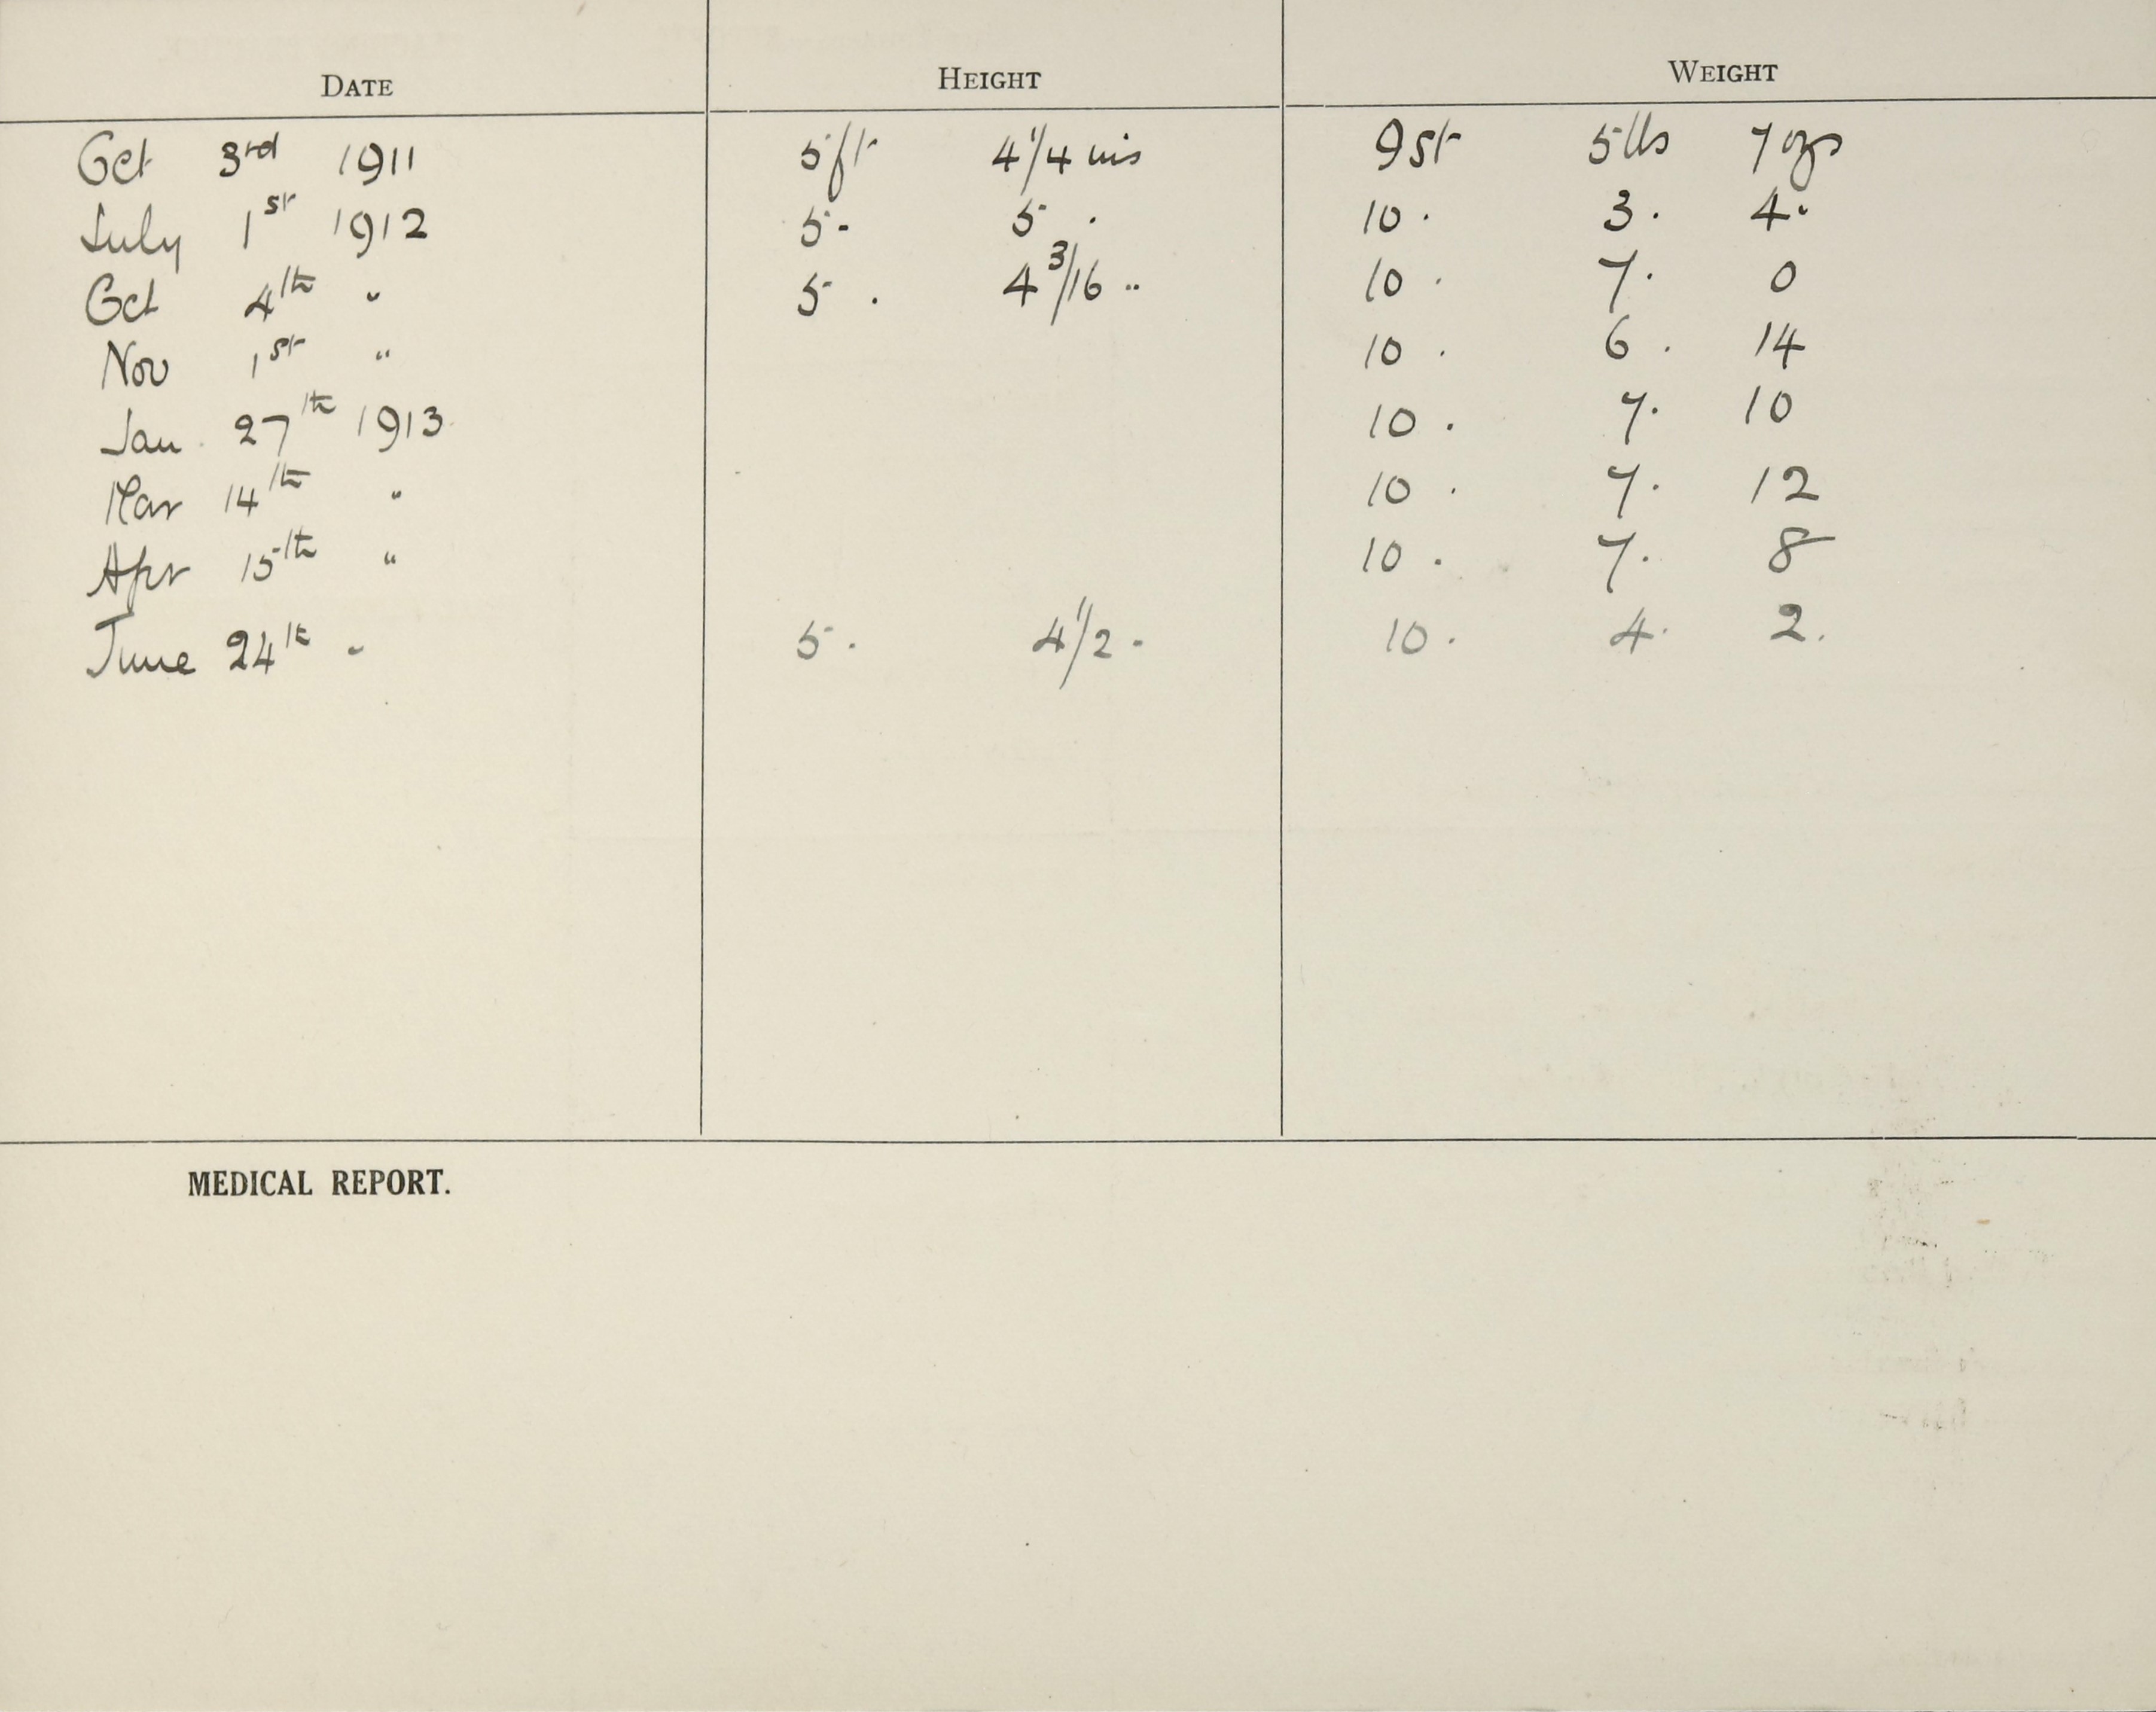 DATE HEIGHT WEIGHT
Oct 3rd 1911 5ft 4 1/4 ins 9st 5lbs 7ozs
July 1st 1912 5 - 5 . 10 . 3 . 4 .
Oct 4th " 5 . 4 3/16 " 10 . 7 . 0
Nov 1st " 10 . 6 . 14
Jan . 27th 1913 10 . 7 . 10
Mar 14th " 10 . 7 . 12
Apr 15th " 10 . 7 . 8
June 24th " 5 . 4 1/2 . 10 . 4 . 2 .
MEDICAL REPORT.